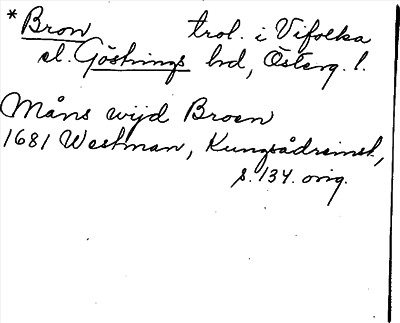 *Bron trol. i Vifolka
el. Göstrings hd, Österg. l.
Måns wijd Broen
1681 Westman, Kungsådreinst.,
s. 134. orig.